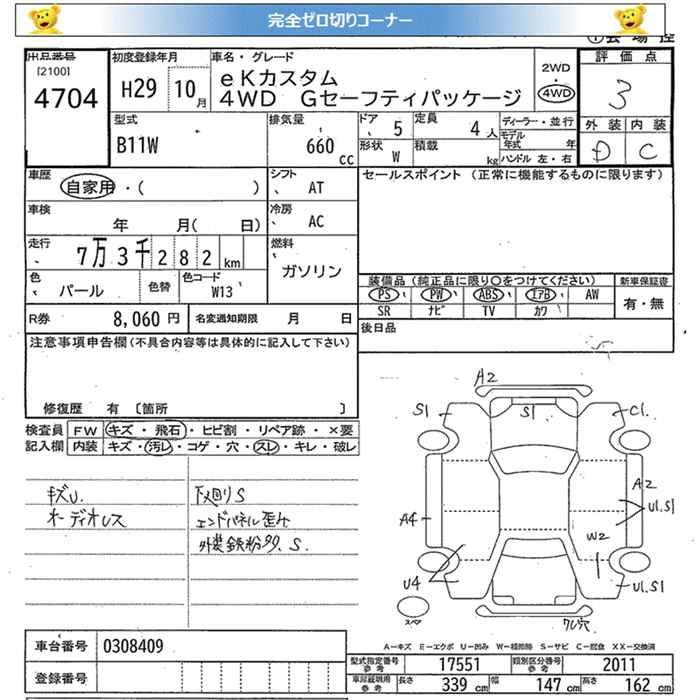 完全ゼロ切りコーナー
出品番号 初度登録年月 車名・グレード ①会場控
[2100] eKカスタム 2WD 評価点
4704 H29 10月 4WD Gセーフティパッケージ 4WD 3
型式 排気量 ドア 5 定員 4人 ディーラー・並行 外装 内装
B11W 660cc 形状 W 積載 kg モデル年式 年式 ハンドル 左・右 D C
車歴 自家用・( ) シフト AT セールスポイント (正常に機能するものに限ります)
車検 年 月( 日) 冷房 AC
走行 7万3千282km 燃料 ガソリン
色 パール 色替 色コード W13 装備品(純正品に限り○をつけてください) 新車保証書
PS PW ABS エアB AW 有・無
SR ナビ TV カワ
R券 8,060円 名変通知期限 月 日 後日品
注意事項申告欄(不具合内容等は具体的に記入して下さい)
修復歴 有 [箇所 ]
検査員 FW キズ・飛石・ヒビ割・リペア跡・×要
記入欄 内装 キズ・汚レ・コゲ・穴・スレ・キレ・破レ
キズU. 下廻りS
オーディオレス エンドパネル歪み
外装鉄粉 S.
A2
S1 S1 C1.
A2
U1.S1
A4 W2
U4 U1.S1
スペア
A−キズ E−エクボ U−凹み W−補修跡 S−サビ C−腐食 XX−交換済
車台番号 0308409 型式指定番号 参考 17551 類別区分番号 参考 2011
登録番号 参考 長さ 339cm 幅 147cm 高さ 162cm